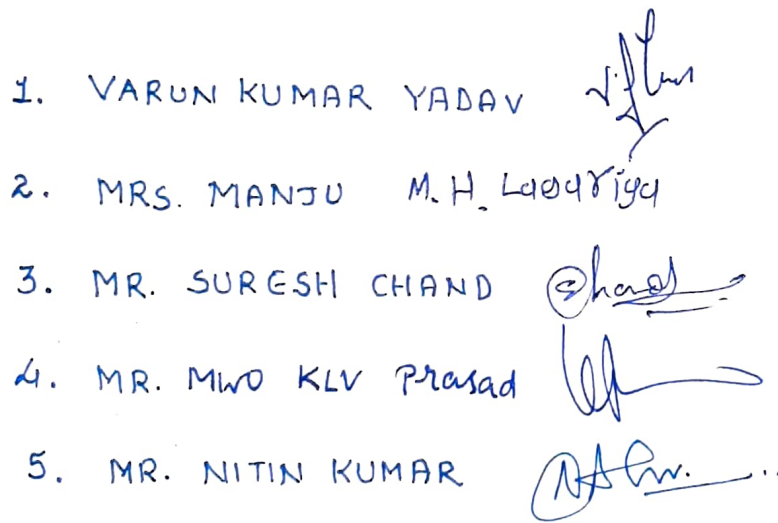 1. VARUN KUMAR YADAV
2. MRS. MANJU M. H.
3. MR. SURESH CHAND Chand
4. MR. MWO KLV Prasad
5. MR. NITIN KUMAR